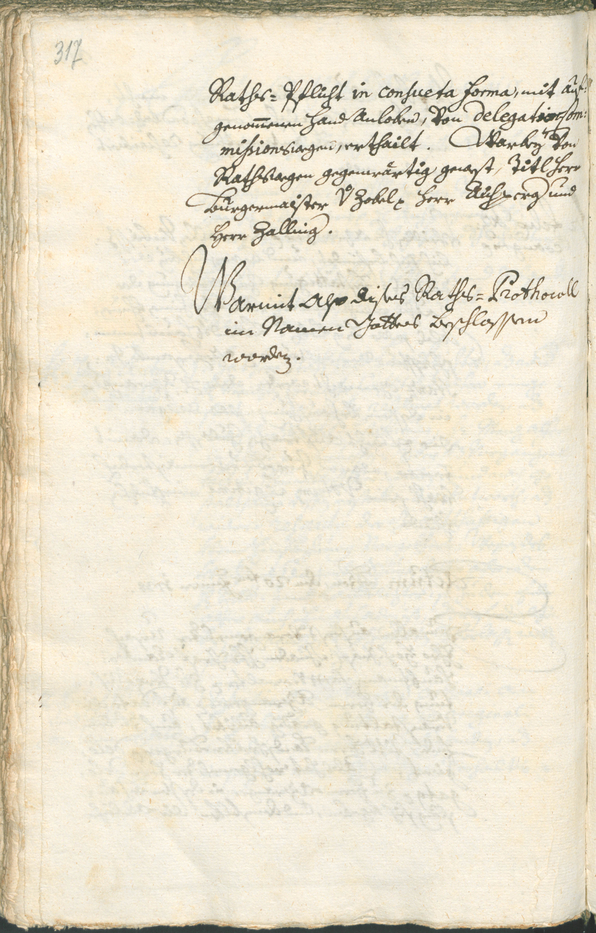 317
Raths=Pflicht in consueta forma, mit auf=
genommenen Hand Anloben, von delegations Com=
missionswegen, ertheilt. Warbey von
Rathswegen gegenwärtig gewest, Titl Herr
Burgermaister v Zobel, Herr und
Herr Zallinger.
Warmit also dises Raths=Prothocoll
im Namen Gottes beschlossen
worden.